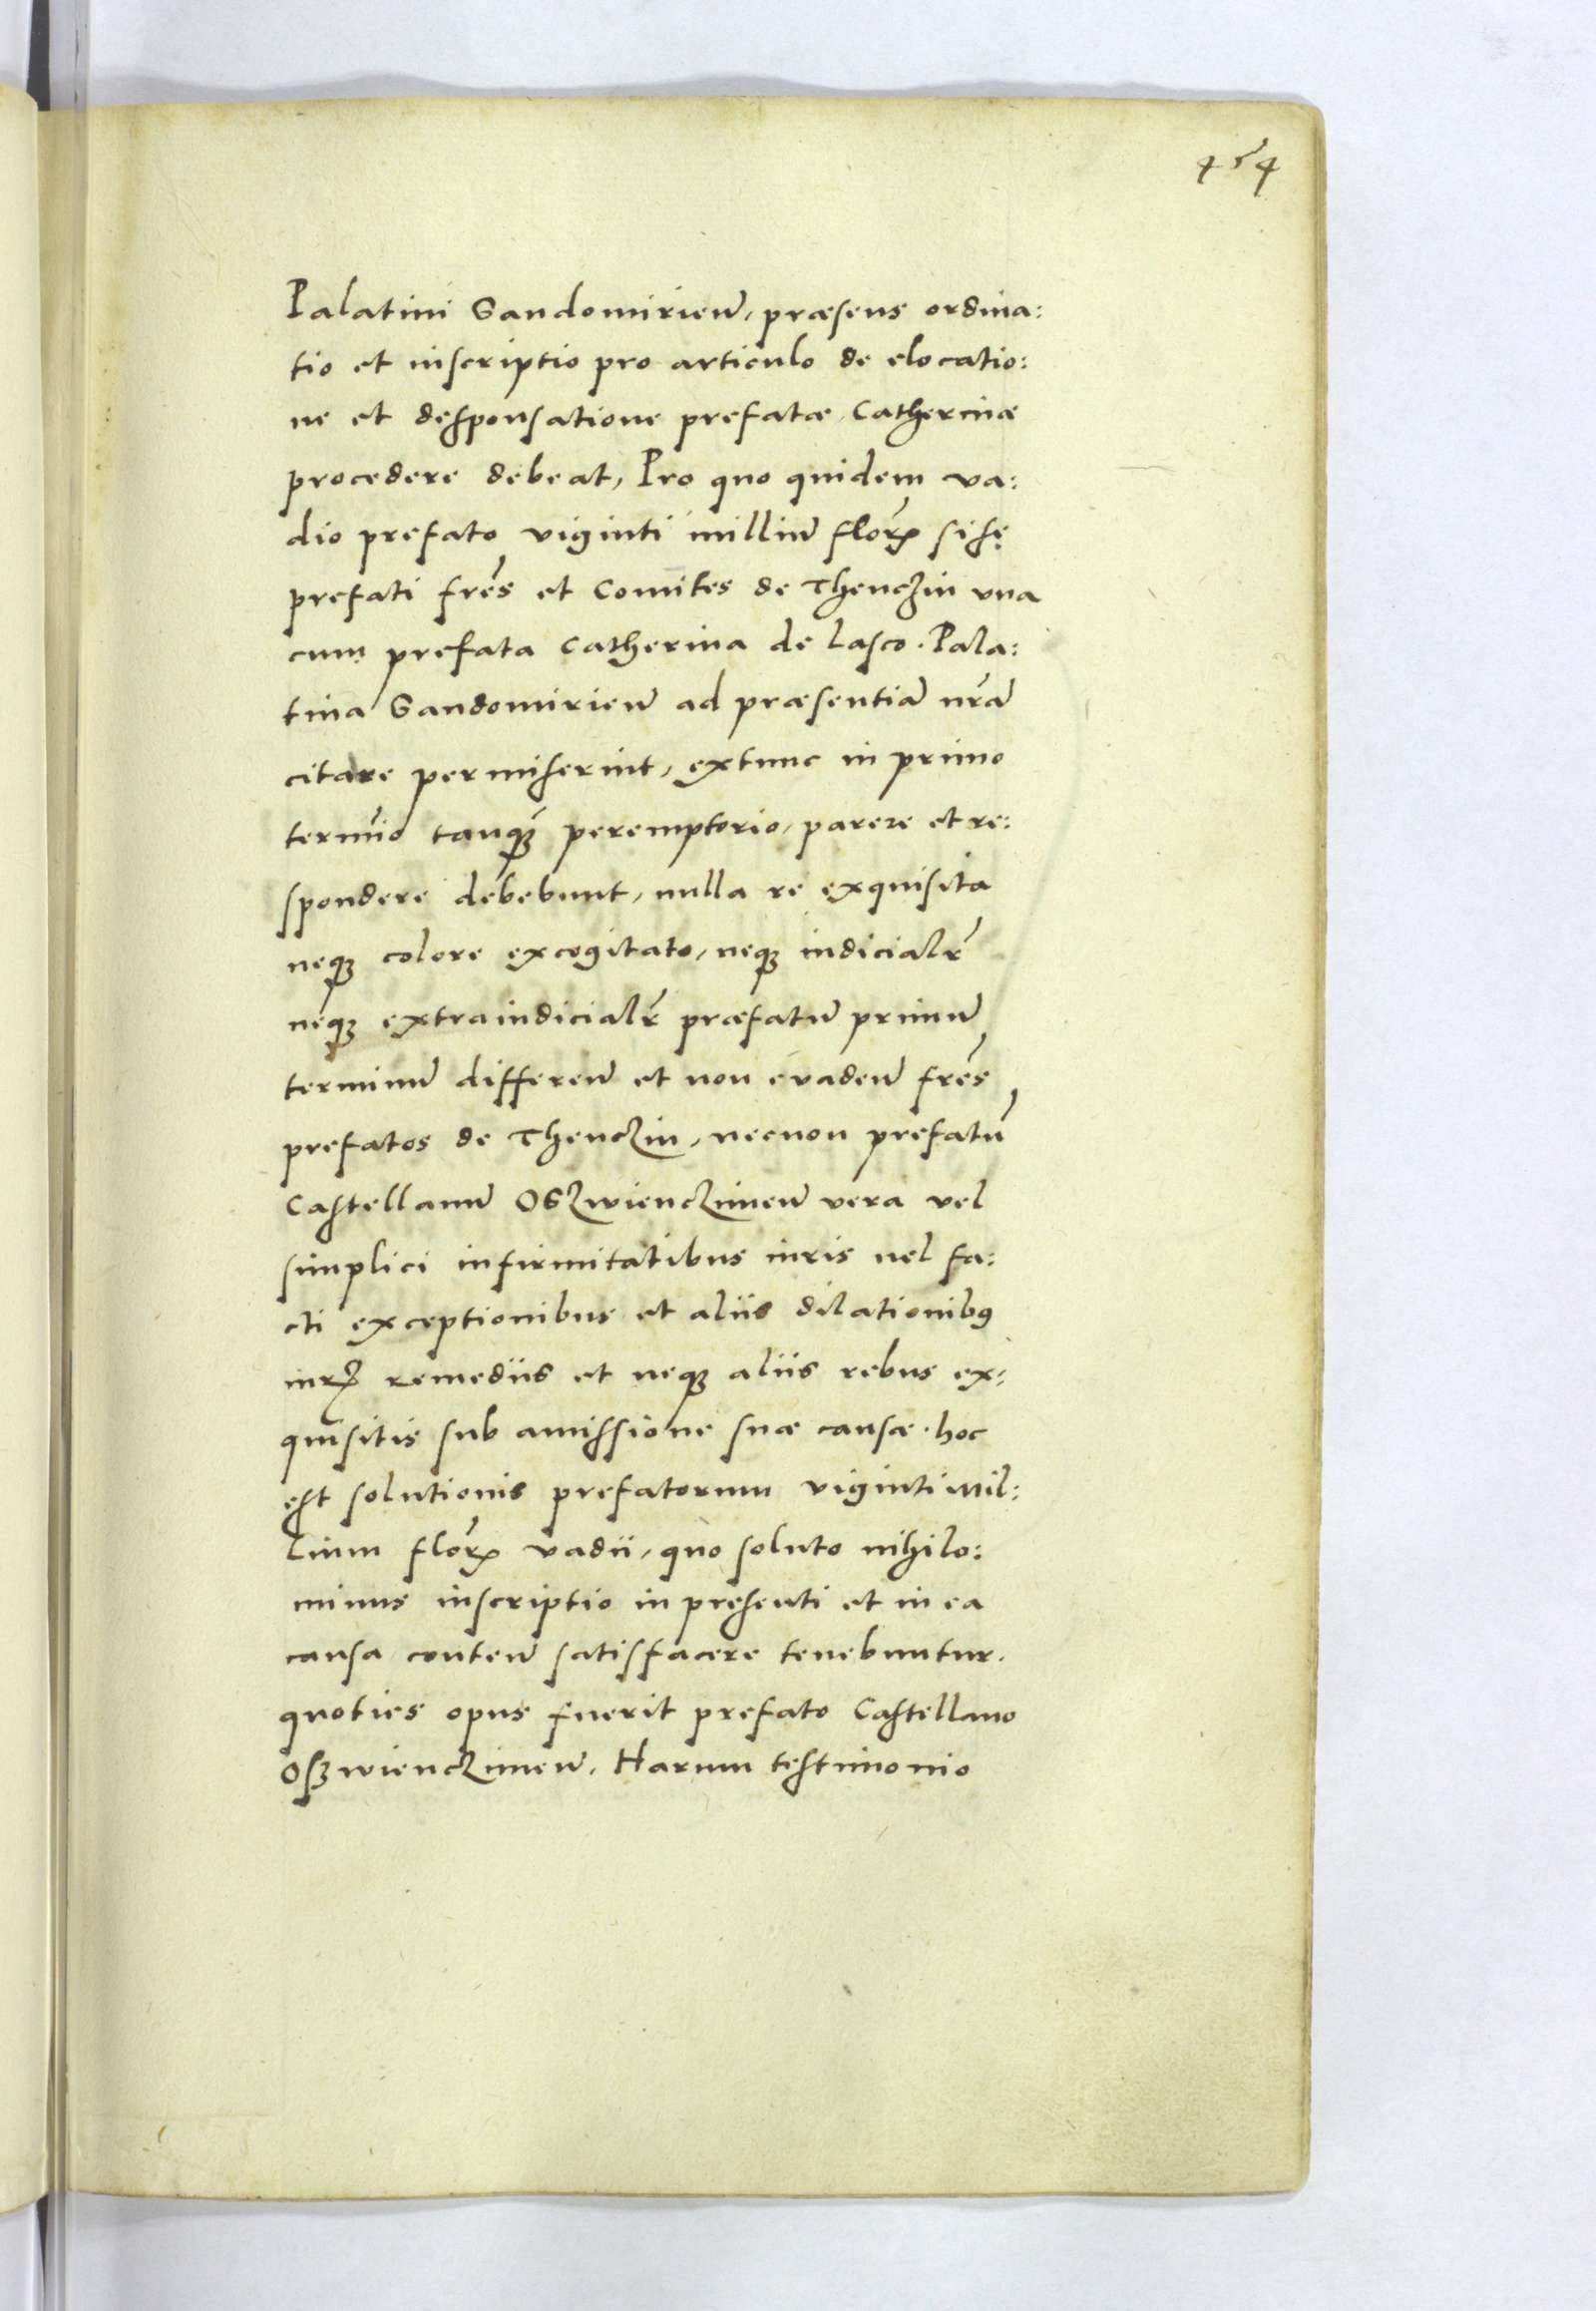 454
Palatini Sandomirien̄, præsens ordina:
tio et inscriptio pro articulo de elocatio:
ne et desponsatione prefatæ Catherinæ
procedere debeat, Pro quo quidem va:
dio prefato viginti milliū florꝝ si se
prefati frēs et Comites de Thenczin vna
cum prefata Catherina de Lasco. Pala:
tina Sandomirien̄ ad præsentiā nrām
citare permiserint, extunc in primo
termīo tanqꝫ peremptorio, parere et re:
spondere debebunt, nulla re exquisita
neqꝫ colore excogitato, neqꝫ iudicialr̄
neqꝫ extraiudicialr̄ præfatū primū
terminū differen̄ et non euaden̄ frēs
prefatos de Thenczin, necnon prefatū
Castellanū OSzwienczimen̄ vera vel
simplici infirmitatibus iuris uel fa:
cti exceptionibus et aliis dilationibꝯ
iurꝝ remediis et neqꝫ aliis rebus ex:
quisitis sub amissione suæ causæ. hoc
est solutionis prefatorum viginti mil:
lium florꝝ vadii, quo soluto nihilo:
minus inscriptio in presenti et in ea
causa conten̄ satisfacere tenebuntur.
quoties opus fuerit prefato Castellano
Oszwienczimen̄. Harum testimonio